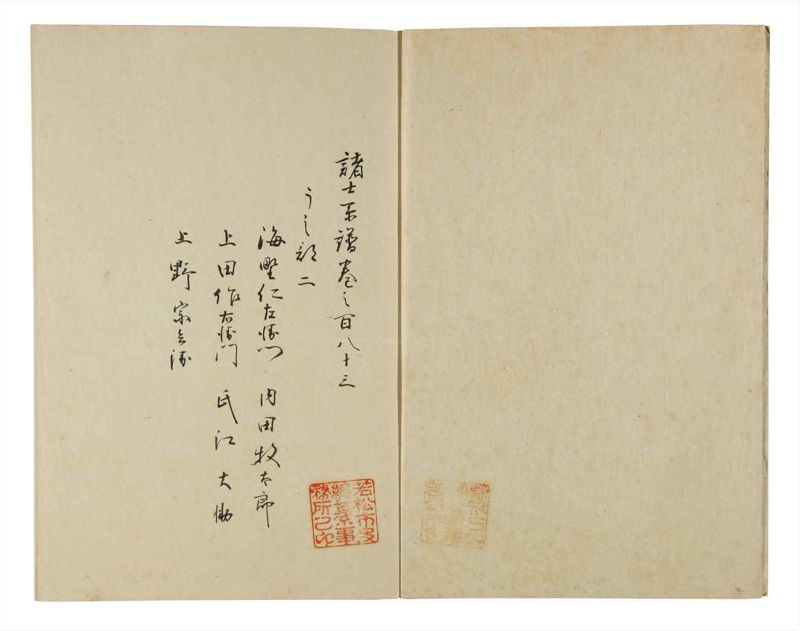 諸士系譜巻之百八十三
う之部二
海野仁左衛門 内田牧太郎
上田作右衛門 氏江大
上野宗兵衛
若松市史
編纂事
務所之印